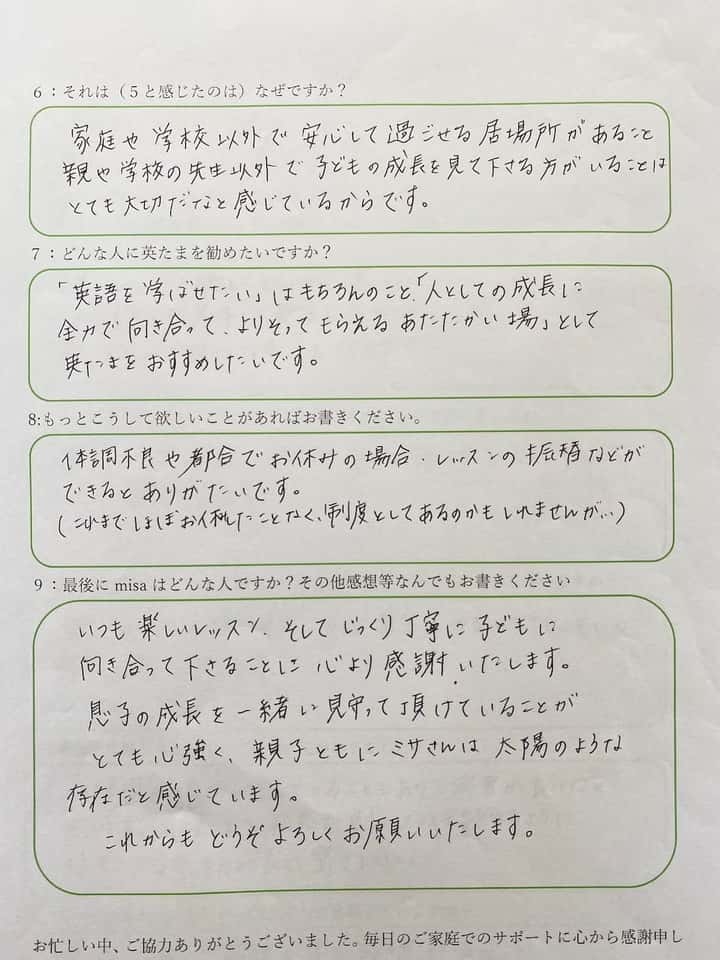 6：それは（５と感じたのは）なぜですか？
家庭や学校以外で安心して過ごせる居場所があること
親や学校の先生以外で子どもの成長を見て下さる方がいることは
とても大切だなと感じているからです。
7：どんな人に英たまを勧めたいですか？
「英語を学ばせたい」はもちろんのこと、「人としての成長に
全力で向き合って、よりそってもらえるあたたかい場」として
英たまをおすすめしたいです。
8:もっとこうして欲しいことがあればお書きください。
体調不良や都合でお休みの場合、レッスンの振替などが
できるとありがたいです。
（これまでほぼお休みしたことなく、制度としてあるのかもしれませんが…）
9：最後に misa はどんな人ですか？その他感想等なんでもお書きください
いつも楽しいレッスン、そしてじっくり丁寧に子どもに
向き合って下さることに心より感謝いたします。
息子の成長を一緒に見守って頂けていることが
とても心強く、親子ともにミサさんは太陽のような
存在だと感じています。
これからもどうぞよろしくお願いいたします。
お忙しい中、ご協力ありがとうございました。毎日のご家庭でのサポートに心から感謝申し